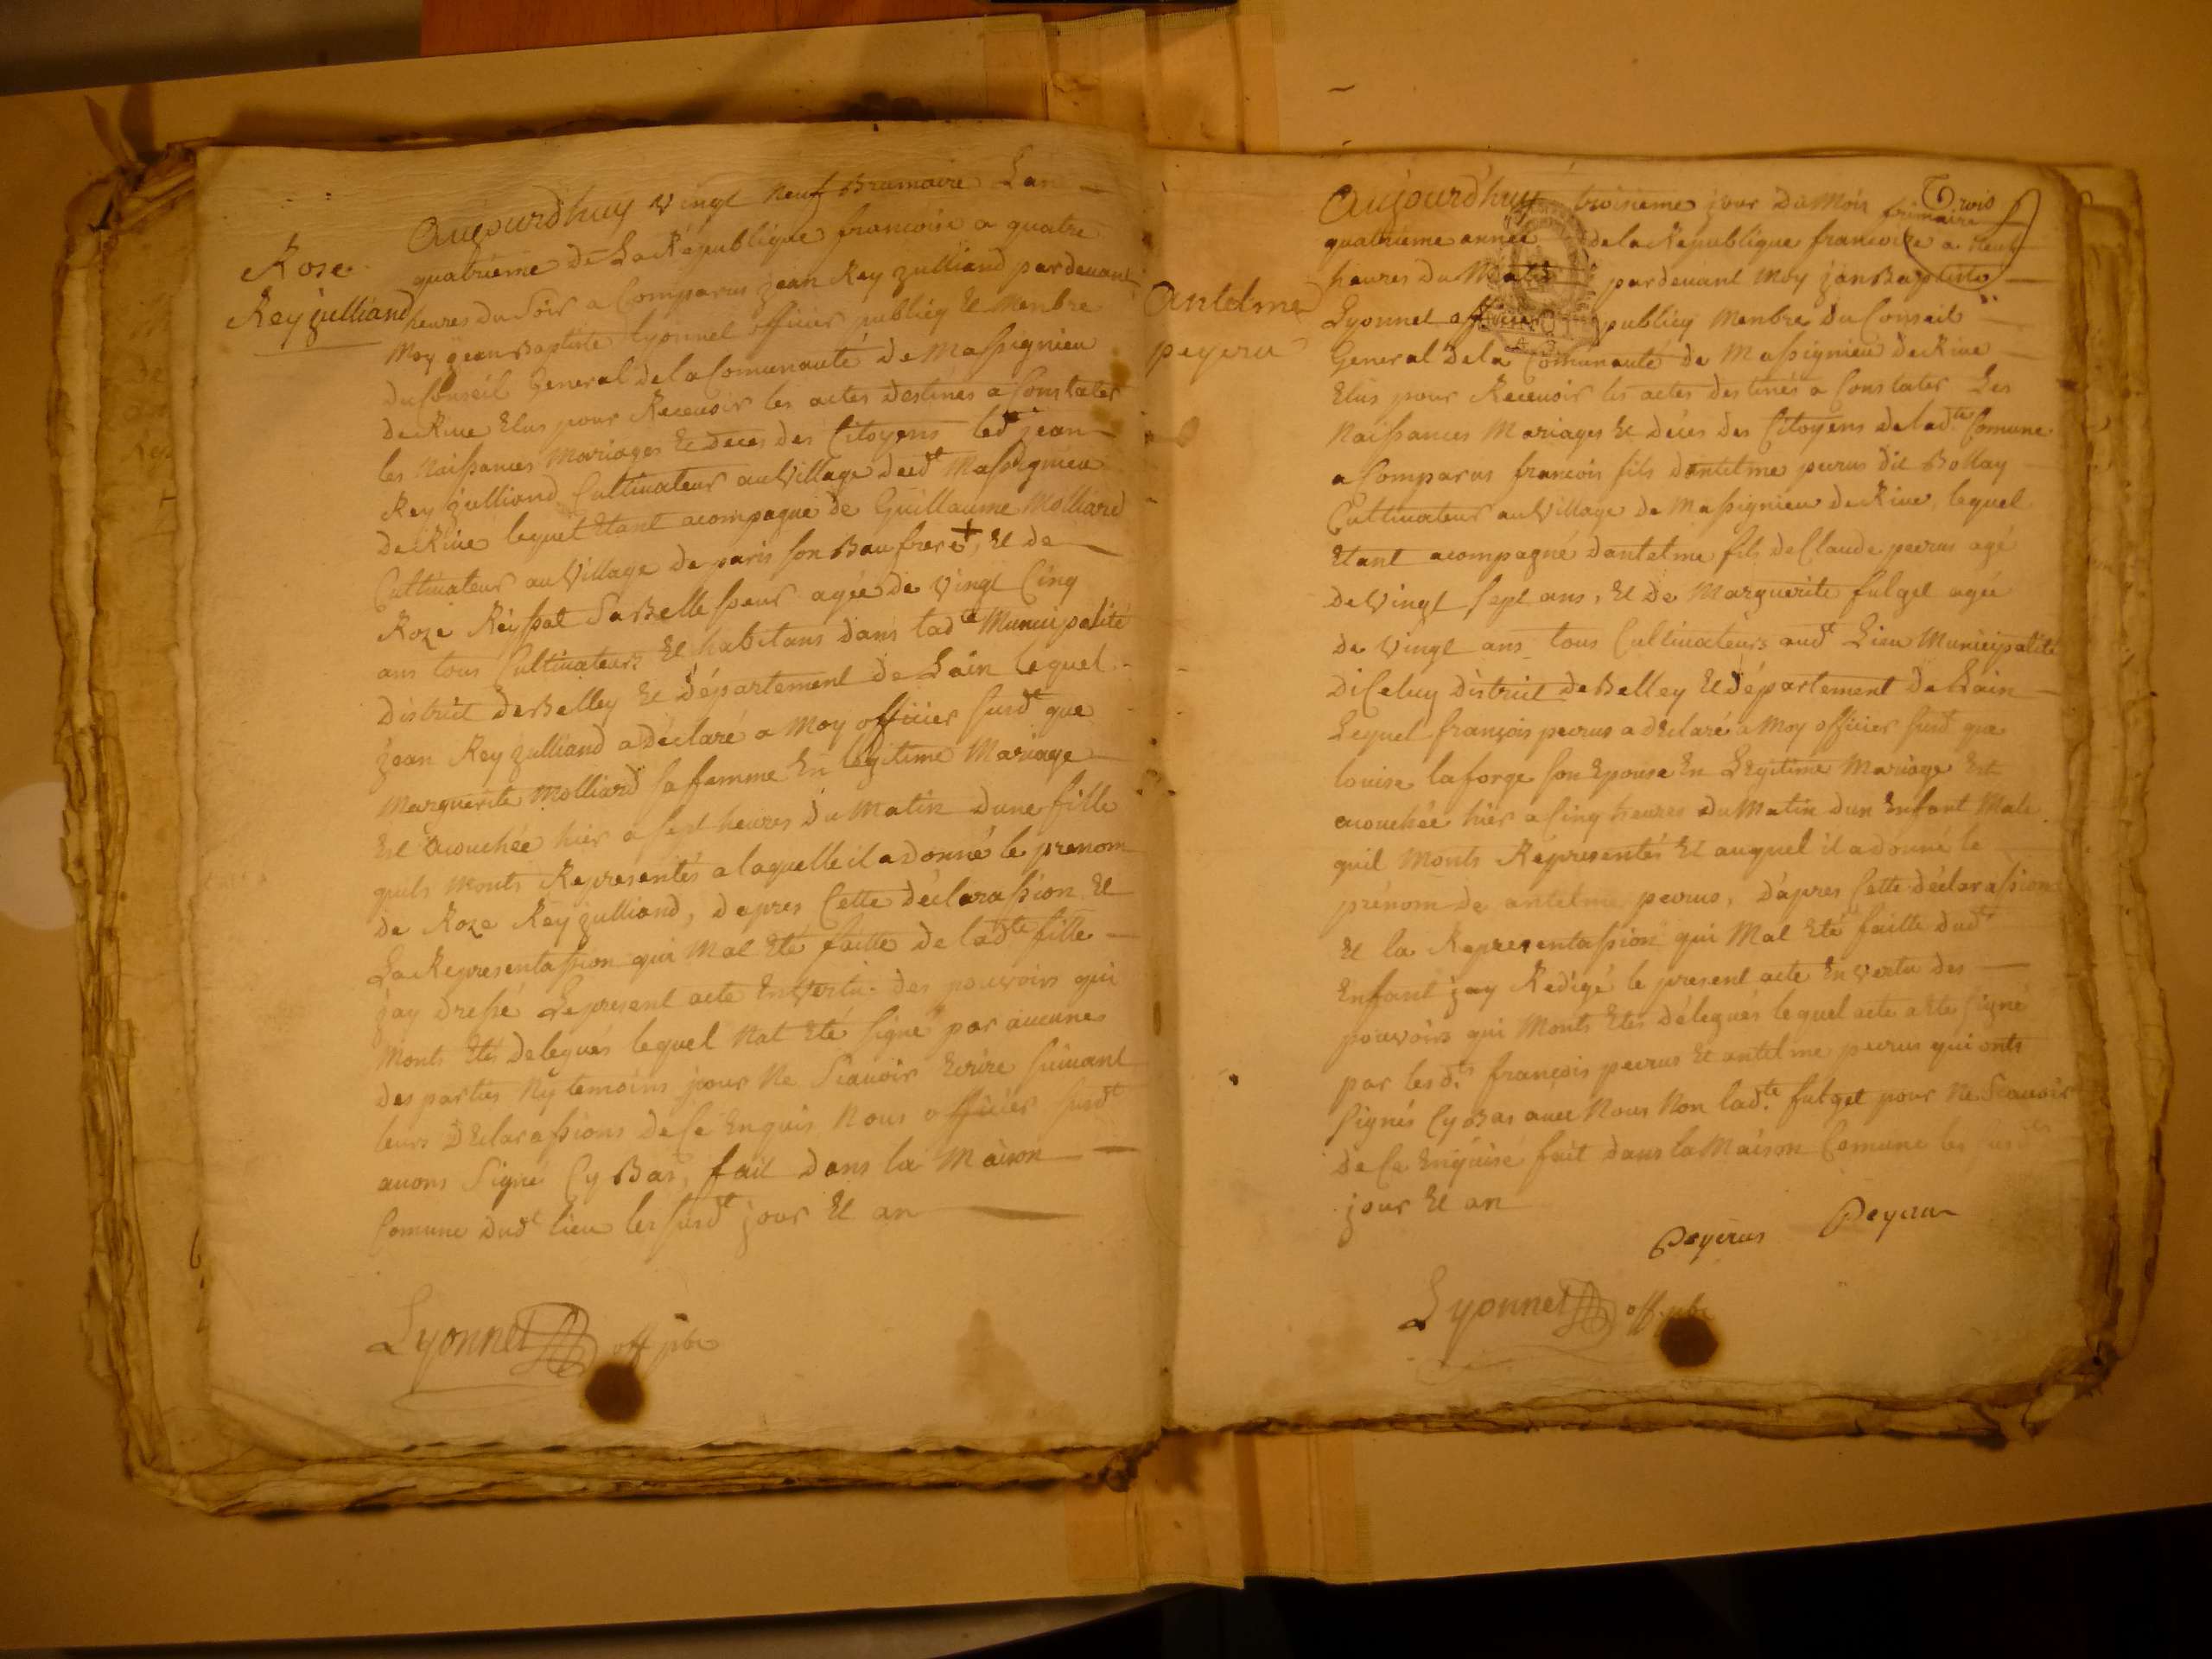 Rose
Reyjulliand
Aujourdhuy vingt neuf Brumaire Lan
quatrieme de La Republique francoise a quatre
heures du Soir a Comparus jean Rey zulliand pardevant
Moy jean Baptiste Lyonnet officier publicq Et Menbre
du Conseil General de la Comunauté de Massignieu
de Rive Elus pour Recevoir les actes destinés a Constater
les Naissances Mariages Et deces des Citoyens led.t jean
Rey julliand Cultivateur au Village dud.t Massignieu
de Rive lequel Etant acompagne de Guillaume Molliard
Cultivateur au Village de paris son Beaufrere +, Et de
Roze Reissat Sa Belle sœur agée de vingt Cinq
ans tous Cultivateurs Et habitans dans lad.te Municipalité
District de Belley Et département de Lain lequel
jean Rey zulliand a déclaré a Moy officier susd.t que
Marguerite Molliard sa femme En legitime Mariage
Est acouchée hier a sept heures du Matin dune fille
quils Monts Représentés a laquelle il a donné le prenom
de Roze Rey zulliand, d'apres Cette déclarassion Et
La Representassion qui Mat Eté faitte de lad.te fille
jay dressé Le present acte En vertu des pouvoirs qui
Monts Etés delegués lequel Nat Eté signé par aucunes
des parties Ny temoins pour Ne Scavoir Ecrire suivant
leurs Déclarassions de Ce Enquis Nous officier susd.t
avons Signé Cy Bas, fait dans la Maison
Comune dud.t lieu les susd.t jour Et an
Lyonnet off pbc
Trois
antelme
peyeru
Aujourdhuy troisieme jour du Mois frimaire
quatrieme année de la Republique francoise a neuf
heures du Matin pardevant Moy jan Baptiste
Lyonnet officier publicq Menbre du Conseil
General de la Comunauté de Massignieu de Rive
Elus pour Recevoir les actes destinés a Constater Les
Naissances Mariages Et déces des Citoyens de lad.te Comune
a Comparus francois fils dantelme peirus dit Bollay
Cultivateur au Village de Massignieu de Rive, lequel
Etant acompagné dantelme fils de Claude peirus agé
de vingt sept ans, Et de Marguerite fulget agée
de vingt ans tous Cultivateurs aud.t Lieu Municipalité
diCeluy District de Belley Et département de Lain
Lequel françois peirus a déclaré a Moy officier susd.t que
louise laforge son Epouse En Legitime Mariage Est
acouchée hier a Cinq heures du Matin dun Enfant Male
quil Monts Représentés Et auquel il a donné le
prénom de antelme peirus, d'apres Cette déclarassion
Et la Representassion qui Mat Eté faitte dud.t
Enfant jay Redigé le present acte En vertu des
pouvoirs qui Monts Etés délegués lequel acte a Eté signé
par lesd.ts françois peirus Et antelme peirus qui onts
signés Cy Bas avec Nous Non lad.te fulget pour Ne Scavoir
de Ce Enquise fait dans la Maison Comune les susd.ts
jour Et an
Peyerus Peyeru
Lyonnet off. pbc